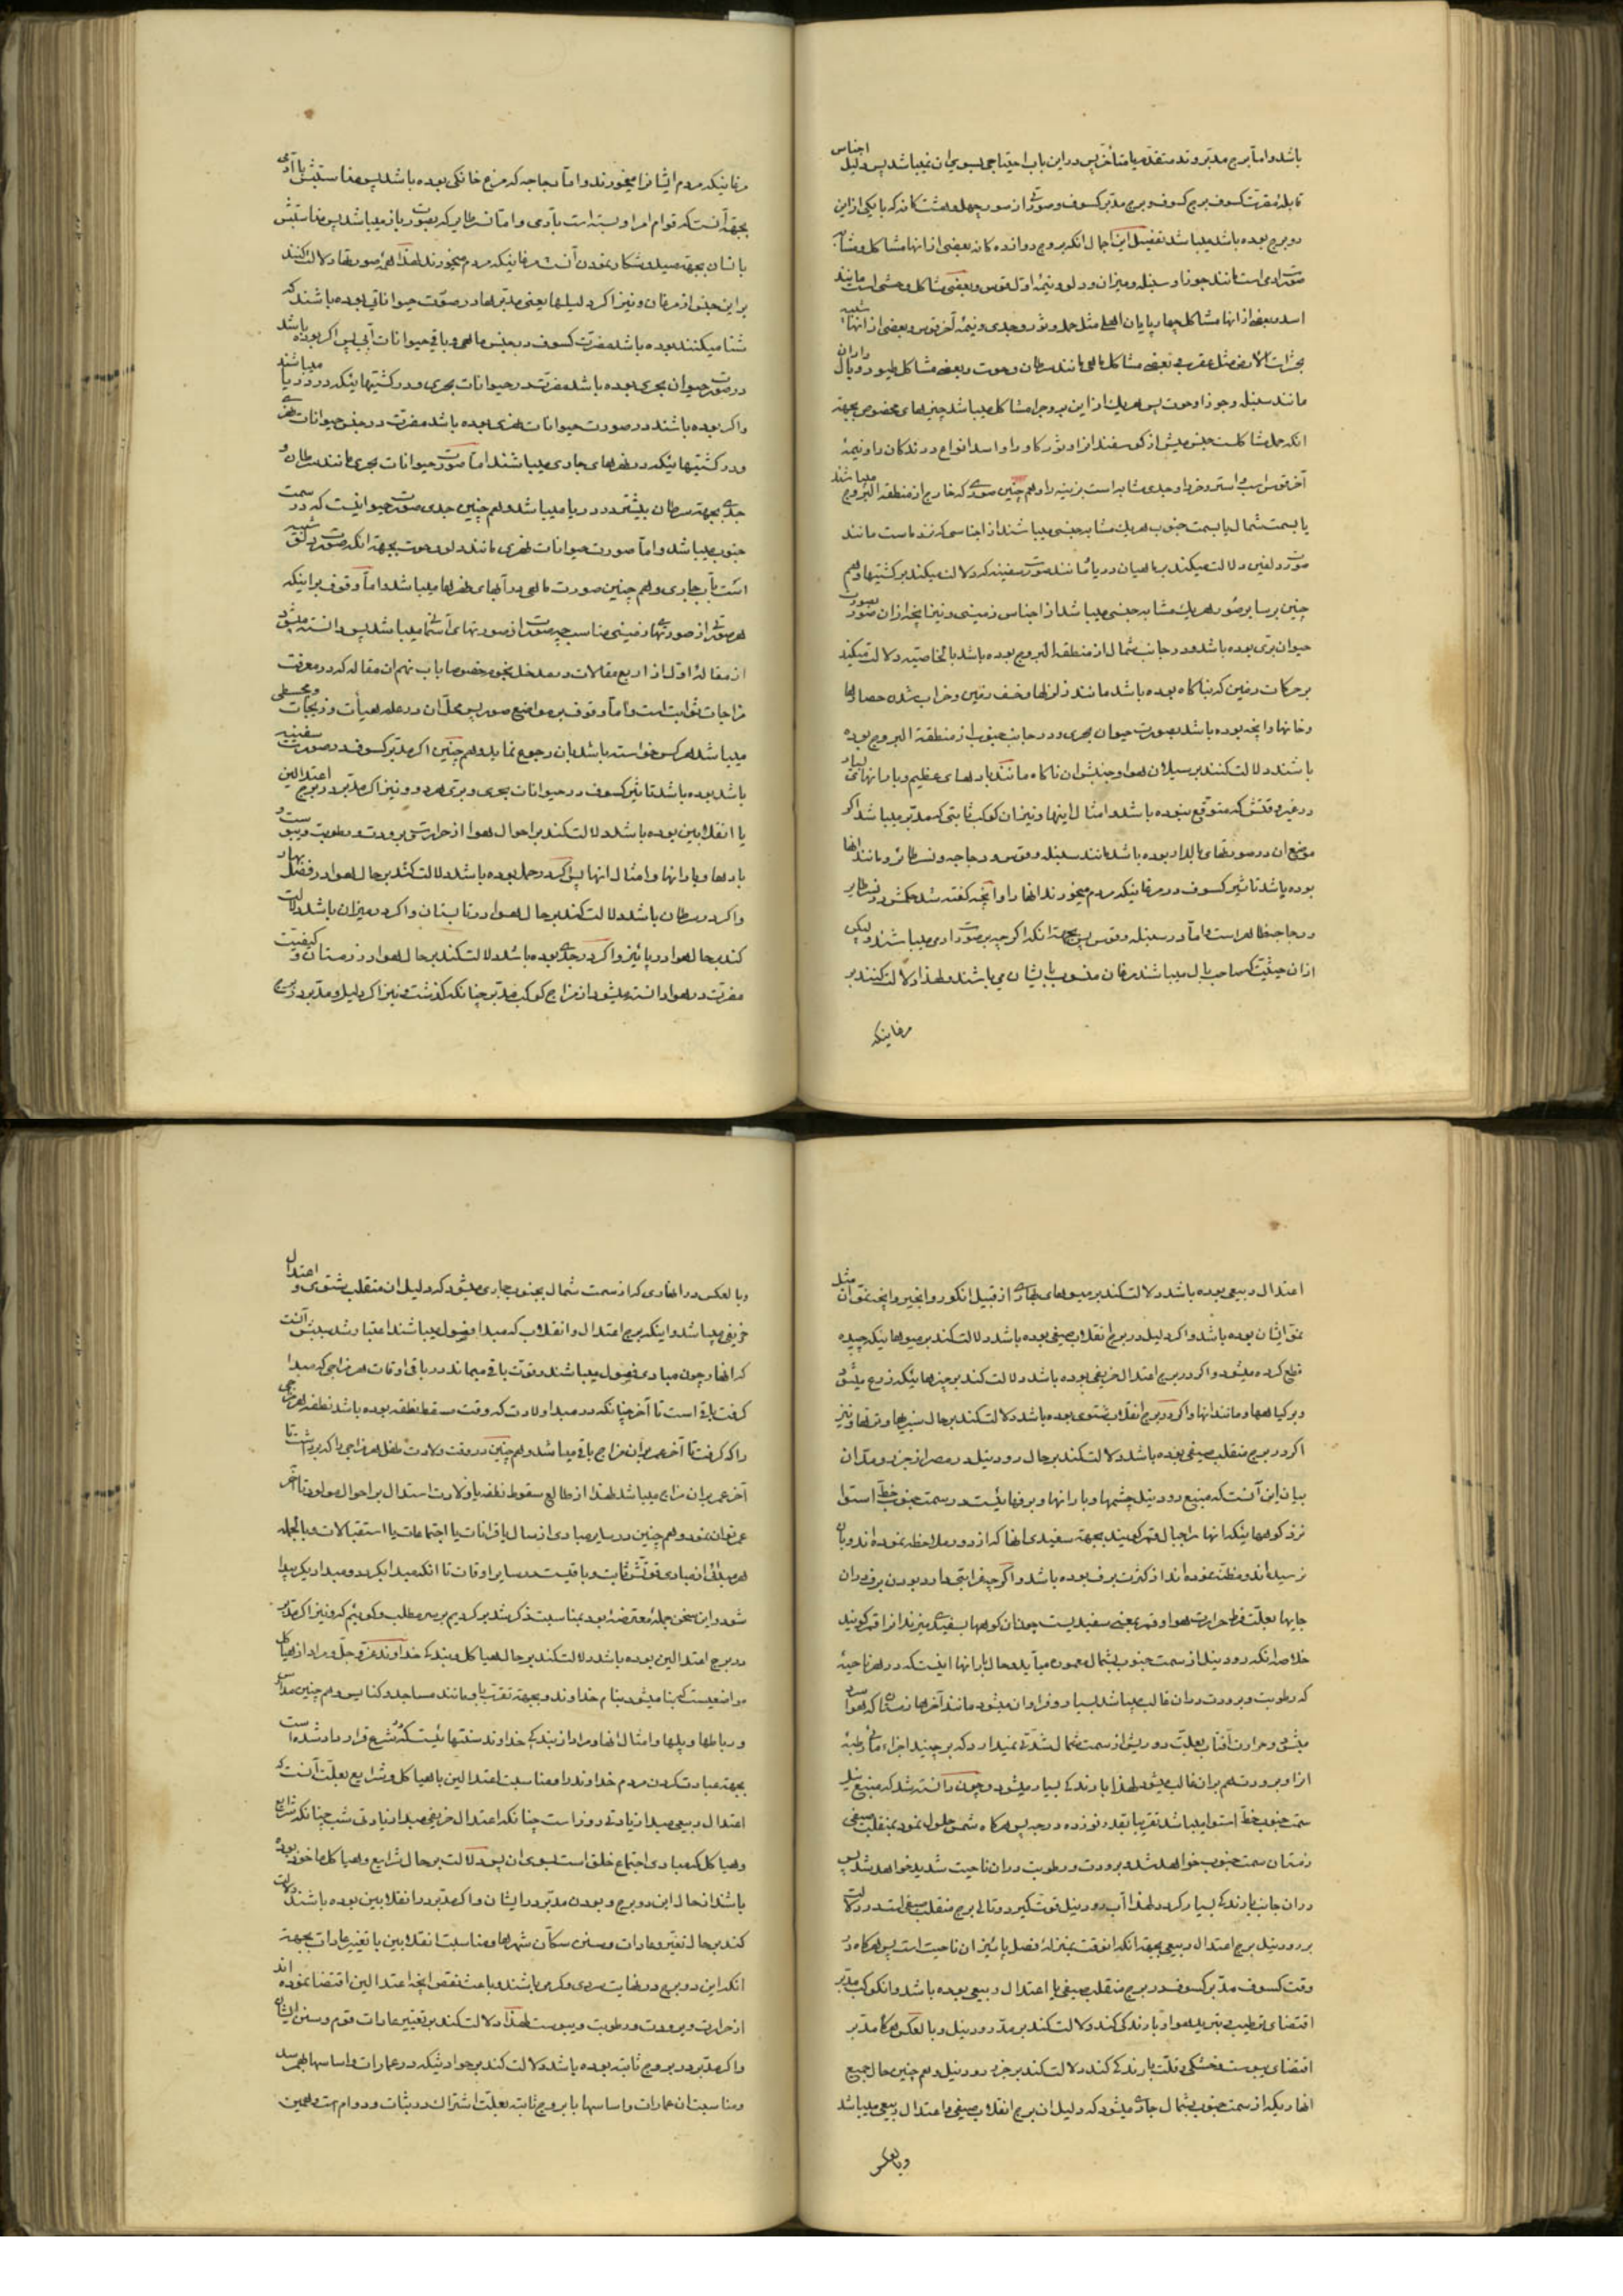 باشد و اما برج مدبر و ند متقدم یا متأخر پس در این باب احتیاجی بسوی ان نمیباشد پس دلیل اجناس
قابله مضرت کسوف برج کسوف و برج مدبر کسوف و صورت از صور چهل و هشت کانه که با یکی از این
دو برج بوده باشد میباشد تفصیل این اجمال انکه بروج دوازده کانه بعضی از انها مشاکل و مشابه
صورت ادمی است مانند جوزا و سنبله و میزان و دلو و نیمه اول قوس و بعضی مشاکل وحشی است مانند
اسد و بعضی از انها مشاکل چهار پایان اهلی مثل حمل و ثور و جدی و نیمه آخر قوس و بعضی از انها شبیه
بحشرات الارض مثل عقرب و بعضی مشاکل ماهی مانند سرطان و حوت و بعضی مشاکل طیور و بال داران
مانند سنبله و جوزا و حوت پس هر یک از این بروج را مشاکل میباشد چیزهای مخصوص بجهة
انکه حمل مشاکلست جنس میش از کوسفند انرا و ثور کاو را و اسد انواع درندکان را و نیمه
آخر قوس اسب و استر و خر را و جدی مشابه است بزینه را و هم چنین صورتی که خارج از منطقة البروج میباشند
یا بسمت شمال یا بسمت جنوب هر یک مشابه جنسی میباشند از اجناسی که نزد ماست مانند
صورت دلفین دلالت میکند بر ماهیان دریا و مانند صورت سفینه که دلالت میکند بر کشتیها و هم
چنین بر سایر صور هر یک مشابه جنسی میباشد از اجناس زمینی و نیز انچه از ان صور بصورت
حیوان بری بوده باشد و در جانب شمال از منطقة البروج بوده باشد بالخاصیه دلالت میکند
بر حرکات زمین که بناکاه بوده باشد مانند زلزلها و خسف زمین و خراب شدن حصارها
و خانها و انچه بوده باشد بصورت حیوان بحری و در جانب جنوب از منطقة البروج بوده
باشند دلالت کنند بر سیلان هوا و جنبش ان ناکاه مانند بادهای عظیم و بارانهای بسیار
در غیر وقتش که متوقع نبوده باشد و امثال اینها و نیز ان کوکب ثابتی که مدبر میباشد اکر
موضع ان در صورتهای بالدار بوده باشد مانند سنبله و قوس و دجاجه و نسر طائر و مانند انها
بوده باشد تاثیر کسوف در مرغانیکه مردم میخورند انها را و انچه کفته شد حکمش در نسر طایر
و دجاجه ظاهر است و اما در سنبله و قوس پس بجهة انکه اکرچه بر صورت ادمی میباشند و لیکن
از ان حیثیت که صاحب بال میباشند مرغان منسوب بایشان می باشند و لهذا دلالت کنند بر
مرغانیکه
مرغانیکه مردم ایشانرا میخورند و اما دجاجه که مرغ خانکی بوده باشد پس مناسبتش با آدمی
بجهة آنست که قوام امر او بسته است بآدمی و اما نسر طایر که بصورت باز میباشد پس مناسبتش
بانسان بجهة صید و شکار نمودن آنست مرغانیکه مردم میخورند لهذا همه صورتها دلالت کنند
بر این جنس از مرغان و نیز اکر دلیلها یعنی مدبرها در صورت حیواناتی بوده باشند که
شنا میکنند بوده باشد مضرت کسوف در جنس ماهی و باقی حیوانات آبی پس اکر بوده باشد
در صورت حیوان بحری بوده باشد مضرت در حیوانات بحری و در کشتیهائیکه در دریا میباشند
و اکر بوده باشند در صورت حیوانات نهری بوده باشد مضرت در جنس حیوانات نهری
و در کشتیهائیکه در نهرهای جاری میباشند اما صورت حیوانات بحری مانند سرطان و
جدی بجهة سرطان بیشتر در دریا میباشد و هم چنین جدی صورت حیوانیست که در سمت
جنوب میباشد و اما صورت حیوانات نهری مانند دلو و حوت بجهة انکه صورت دلو شبیه
است بآب جاری و هم چنین صورت ماهی در آبهای نهرها میباشد و اما وقوف بر اینکه
هر صورتی از صورتهای زمینی مناسب چه صورت از صورتهای آسمانی میباشد پس دانسته میشود
از مقاله اول از اربع مقالات و مدخل نجوم خصوصا باب نهم ان مقاله که در معرفت
مزاجات ثوابت است و اما وقوف بر مواضع صور پس محل آن در علم هیأت و زیجات و مجسطی
میباشد هر کس خواسته باشد بان رجوع نماید و هم چنین اکر مدبر کسوف در صورت سفینه
باشد بوده باشد تاثیر کسوف در حیوانات بحری و بری هر دو و نیز اکر مدبر در برج اعتدالین
یا انقلابین بوده باشد دلالت کند بر احوال هوا از حرارت و برودت و رطوبت و یبوست و
بادها و بارانها و امثال انها پس اکر در حمل بوده باشد دلالت کند بر حال هوا در فصل بهار
و اکر در سرطان باشد دلالت کند بر حال هوا در تابستان و اکر در میزان باشد دلالت
کند بر حال هوا در پائیز و اکر در جدی بوده باشد دلالت کند بر حال هوا در زمستان و کیفیت
مضرت در هوا دانسته میشود از مزاج کوکب مدبر چنانکه کذشت و نیز اکر دلیل و مدبر در برج
اعتدال ربیعی بوده باشد دلالت کند بر میوهای بهاری از قبیل انکور و انجیر و انچه نمو آن مثل
نمو ایشان بوده باشد و اکر دلیل در برج انقلاب صیفی بوده باشد دلالت کند بر میوهائیکه چیده
قطع کرده میشود و اکر در برج اعتدال خریفی بوده باشد دلالت کند بر چیزهائیکه زرع میشود
و بر کیاهها و مانند انها و اکر در برج انقلاب شتوی بوده باشد دلالت کند بر حال سبزیها و ترها و نیز
اکر در برج منقلب صیفی بوده باشد دلالت کند بر حال رود نیل در مصر از جزر و مد آن
بیان این آنست که منبع رود نیل چشمها و بارانها و برفهائیست در سمت جنوب خط استوا
نزد کوههائیکه انها را جبال قمر کویند بجهة سفیدی انها که از دور ملاحظه نموده اند و بان
نرسیده اند و مظنه نموده اند از کثرت برف بوده باشد و اکرچه غرابتی دارد بودن برف در ان
جایها بعلت فرط حرارت هوا و قمر بمعنی سفیدیست چون ان کوهها بسفیدی میزند انرا قمر کویند
خلاصه انکه رود نیل از سمت جنوب بشمال می آید و حال بارانها اینست که در هر ناحیه
که رطوبت و برودت در ان غالب میباشد بسیار و فراوان میشود مانند آخرهای زمستان که هوا سرد
میشود و حرارت آفتاب بعلت دوریش از سمت شمال شدتی نمیدارد که بر چیند اجزاء مائی رطبه
انرا و برودت هم بر ان غالب میشود لهذا بارندکی بسیار میشود و چون دانسته شد که منبع نیل
سمت جنوب خط استوا میباشد تقریبا بقدر نوزده درجه پس هرکاه شمس حلول نمود بمنقلب صیفی
زمستان سمت جنوب خواهد شد و برودت و رطوبت در ان ناحیت شدید خواهد شد پس
در ان جانب بارندکی بسیار کردد لهذا آب رود نیل قوت کیرد و تالی برج منقلب صیفی است در دلالت
بر رود نیل برج اعتدال ربیعی بجهة انکه انوقت بمنزله فصل پائیز ان ناحیت است پس هرکاه در
وقت کسوف مدبر کسوف در برج منقلب صیفی یا اعتدال ربیعی بوده باشد و انکوکب مدبر
اقتضای ترطیب و تبرید هوا و بارندکی کند دلالت کند بر مد رود نیل و بالعکس هرکاه مدبر
اقتضای یبوست و خشکی و قلت بارندکی کند دلالت کند بر جزر رود نیل و هم چنین حال جمیع
انهاریکه از سمت جنوب بشمال جاری میشود که دلیل ان برج انقلاب صیفی و اعتدال ربیعی میباشد
وبالعکس
و بالعکس در انهاری که از سمت شمال بجنوب جاری میشود که دلیل ان منقلب شتوی و اعتدال
خریفی میباشد و اینکه برج اعتدال و انقلاب که مبدا فصول میباشند اعتبار شد سببش آنست
که انها چون مبادی فصول میباشند و قوت باقی میماند در باقی اوقات هر مزاجی که مبدا
کرفته است تا آخر چنانکه در مبدا ولادت که وقت مسقط نطفه بوده باشد نطفه هر مزاجی
را که کرفت تا آخر عمر بر ان مزاج باقی میباشد و هم چنین در وقت ولادت طفل هر مزاجی را که برداشت تا
آخر عمر بر ان مزاج میباشد لهذا از طالع سقوط نطفه یا ولادت استدلال بر احوال مولود تا آخر
عمر توان نمود و هم چنین در سایر مبادی از سال یا قرانات یا اجتماعات یا استقبالات و بالجمله
هر مبدائی از مبادی قوتش ثابت و باقیست در سایر اوقات تا انکه مبدا بکردد و مبدا دیکر پیدا
شود و این سخن جمله معترضه بود بمناسبت ذکر شد بر کردیم بر سر مطلب و کوئیم که و نیز اکر مدبر
در برج اعتدالین بوده باشد دلالت کند بر حال هیاکل و بندکی خداوند عز و جل و مراد از هیاکل
مواضعیست که بنا میشود بنام خداوند و بجهة تقرب باو مانند مساجد و کنایس و هم چنین مدارس
و رباطها و پلها و امثال انها و مراد از بندکی خداوند سنتهائیست که در شرع قرار داد شده است
بجهة عبادت کردن مردم خداوند را و مناسبت اعتدالین با هیاکل و شرایع بعلت آنست که
اعتدال ربیعی مبدا زیادتی روز است چنانکه اعتدال خریفی مبدا زیادتی شب چنانکه شرایع
و هیاکل که مبادی اجتماع خلق است بسوی ان پس دلالت بر حال شرایع و هیاکل ماخوذ بوده
باشد از حال این دو برج و بودن مدبر در ایشان و اکر مدبر در انقلابین بوده باشد دلالت
کند بر حال تغیر و عادات و سنن سکان شهرها و مناسبت انقلابین با تغییر عادات بجهة
انکه این دو برج در نهایت سردی و کرمی باشند و باعث نقض انچه اعتدالین اقتضا نموده اند
از حرارت و برودت و رطوبت و یبوست لهذا دلالت کند بر تغییر عادات قوم و سنن ایشان
و اکر مدبر در بروج ثابته بوده باشد دلالت کند بر حوادثیکه در عمارات و اساسها بهم رسد
و مناسبت ان عمارات و اساسها با بروج ثابته بعلت اشتراک در ثبات و دوام است و همچنین